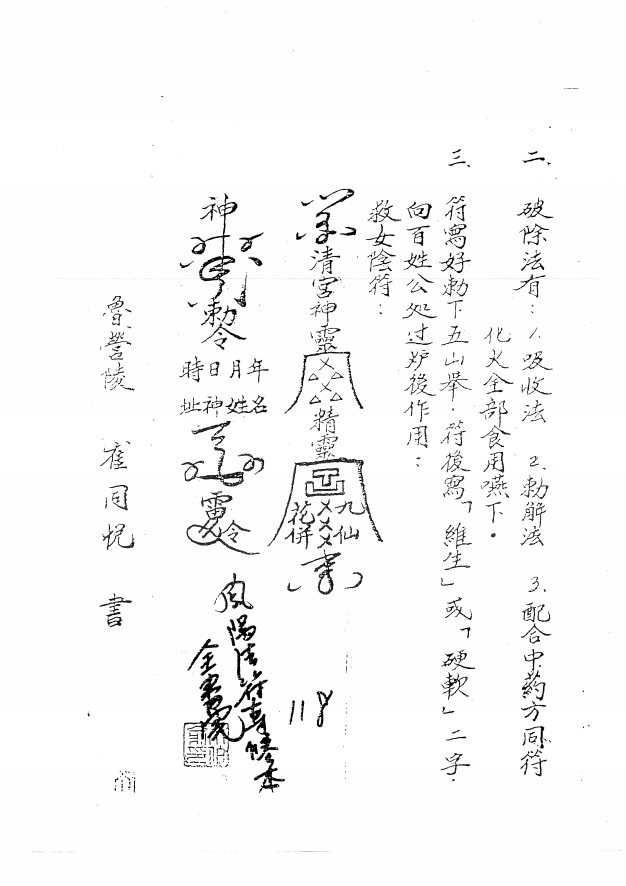 二、破除法有：1.吸收法 2.勅解法 3.配合中葯方同符
化火全部食用嚥下．
三、符寫好勅下五山舉．符後寫「維生」或「硬軟」二字．
向百姓公処过炉後作用：
救女陰符：
清宮神靈
精靈
九仙
花餅
神
勅令
年月日時
名姓神址
雷令
鳳陽法符專膝本
118
魯營陵 崔同悅 書